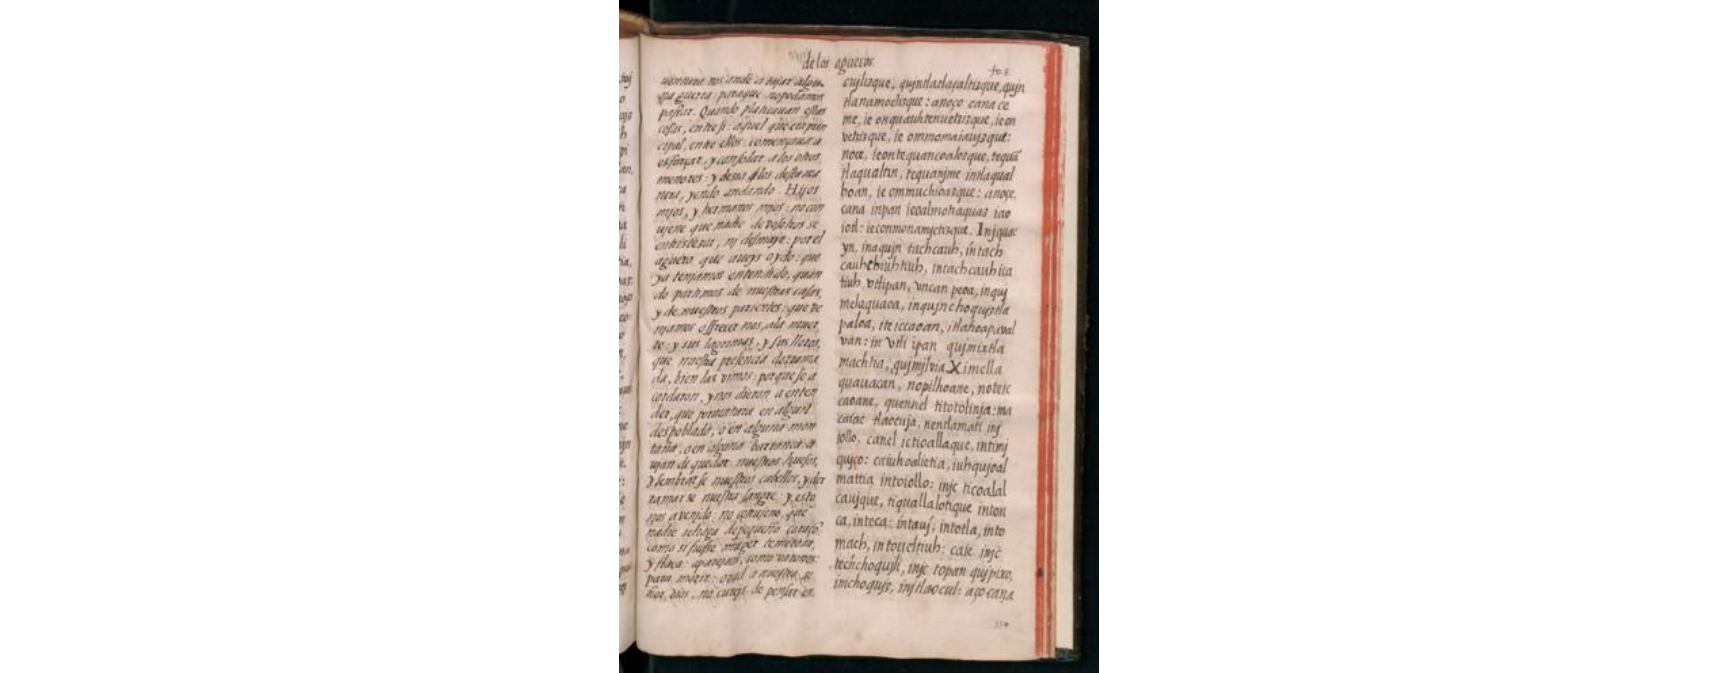 de los agueros.
fo. 3.
na guerra: paraque no podamos
passar. Quando platicauan estas
cosas, entre si: aquel que era prin
cipal, entre ellos: començaua a
esforçar, y consolar a los otros
menores: y desta
nera, yendo andando. Hijos
mjos, y hermanos mjos: no con
ujene que nadie de vosotros se
entristezca, nj desmaye: por el
aguero que aueys oydo: que
ya tenjamos entendido, quan
do partimos de nuestras casas,
y de nuestros parientes: que ve
njamos a offrecer nos, a la muer
te: y sus lagrimas, y sus lloros,
que nuestra presencia derrama
da, bien las vimos: porque se a
cordaron, y nos dieron a enten
der, que porventura en algun
despoblado, o en alguna mon
taña, o en alguna barranca a
ujan de quedar nuestros huesos,
y sembrarse nuestros cabellos, y der
ramarse nuestra sangre: y esto
nos a venjdo: no conujene, que
nadie se haga de pequeño coraçõ:
como si fuesse muger temerosa,
y flaca: aparejaos, como varones:
para morir: orad a nuestro se
ñor, dios, no cureys de pensar en
cujlizque, qujntlatlaçaltizque, qujn
tlanamoelizque: anoço cana ce
me, ie onquauhtenuetzizque, ie on
vetzizque, ie ommomaiaujzque:
noce, ie on tequancoalozque, tequã
tlaqualtin, tequanjme intlaqual
hoan, ie ommuchioazque: anoçe,
cana inpan icoalmohaquaz iao
iotl: ieconmonamjctizque. Injquac
yn, in aqujn tachcauh, in tach
cauhchiuhtiuh, in tachcauhica
tiuh vtlipan, vncan peoa, in quj
melaquaoa, in qujnchoqujztla
paloa, in iteiccaoan, itlahoapaoal
van: in vtli ipan qujmixtla
machtia, qujmjlvia. Ximella
quauacan, nopilhoane, noteic
caoane, quennel titotolinja: ma
caiac tlaocuja, nentlamati inj
iollo, canel ic tioallaque, in timj
qujço: ca iuh oalietia, iuh qujoal
mattia in toiollo: injc ticoalal
caujque, tiquallalotique inton
ca, inteca: in tauj, in totla, in to
mach, in toueltiuh: ca ie injc
techchoqujli, injc topan qujpixo,
imchoqujz, injtlaocul: aço cana